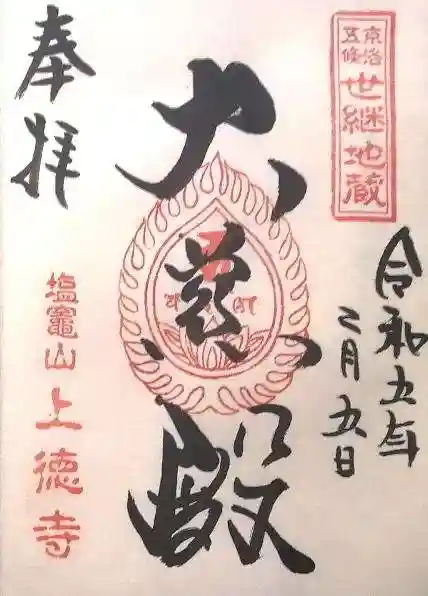 京洛
五條
世継地蔵
奉拝
大慈殿
令和五年
二月五日
塩竈山
上徳寺